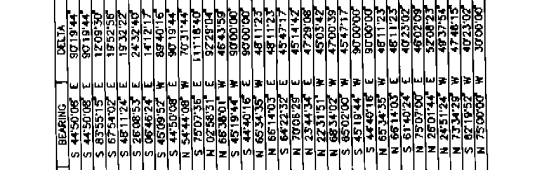 BEARING DELTA
S 44°50'08" E 90°19'44"
S 44°50'08" E 90°19'44"
S 83°53'15" E 12°09'30"
S 67°54'02" E 19°52'56"
S 48°11'24" E 19°32'22"
S 26°08'53" E 24°32'40"
S 06°46'24" E 14°12'17"
S 45°09'52" W 89°40'16"
S 44°50'08" E 90°19'44"
N 54°44'08" W 70°31'44"
S 75°07'36" E
N 02°58'01" E 92°28'04"
N 66°38'01" W 46°43'59"
S 45°19'44" W 90°00'00"
S 44°40'16" E 90°00'00"
N 65°34'35" W 48°11'23"
N 66°14'03" E 48°11'23"
S 64°22'32" E 45°47'17"
N 70°06'29" E 45°14'42"
N 23°44'34" E 47°29'08"
N 22°31'51" W 45°03'42"
N 68°34'02" W 47°00'39"
S 65°02'00" W 45°47'17"
S 45°19'44" W 90°00'00"
S 44°40'16" E 90°00'00"
N 65°34'35" W 48°11'23"
N 66°14'03" E 48°11'23"
S 61°40'24" E 40°23'02"
N 75°07'00" E 46°02'09"
N 26°01'44" E 52°08'23"
N 24°51'24" W 49°37'54"
N 73°34'29" W 47°48'15"
S 62°19'52" W 40°23'02"
N 75°00'00" W 30°00'00"